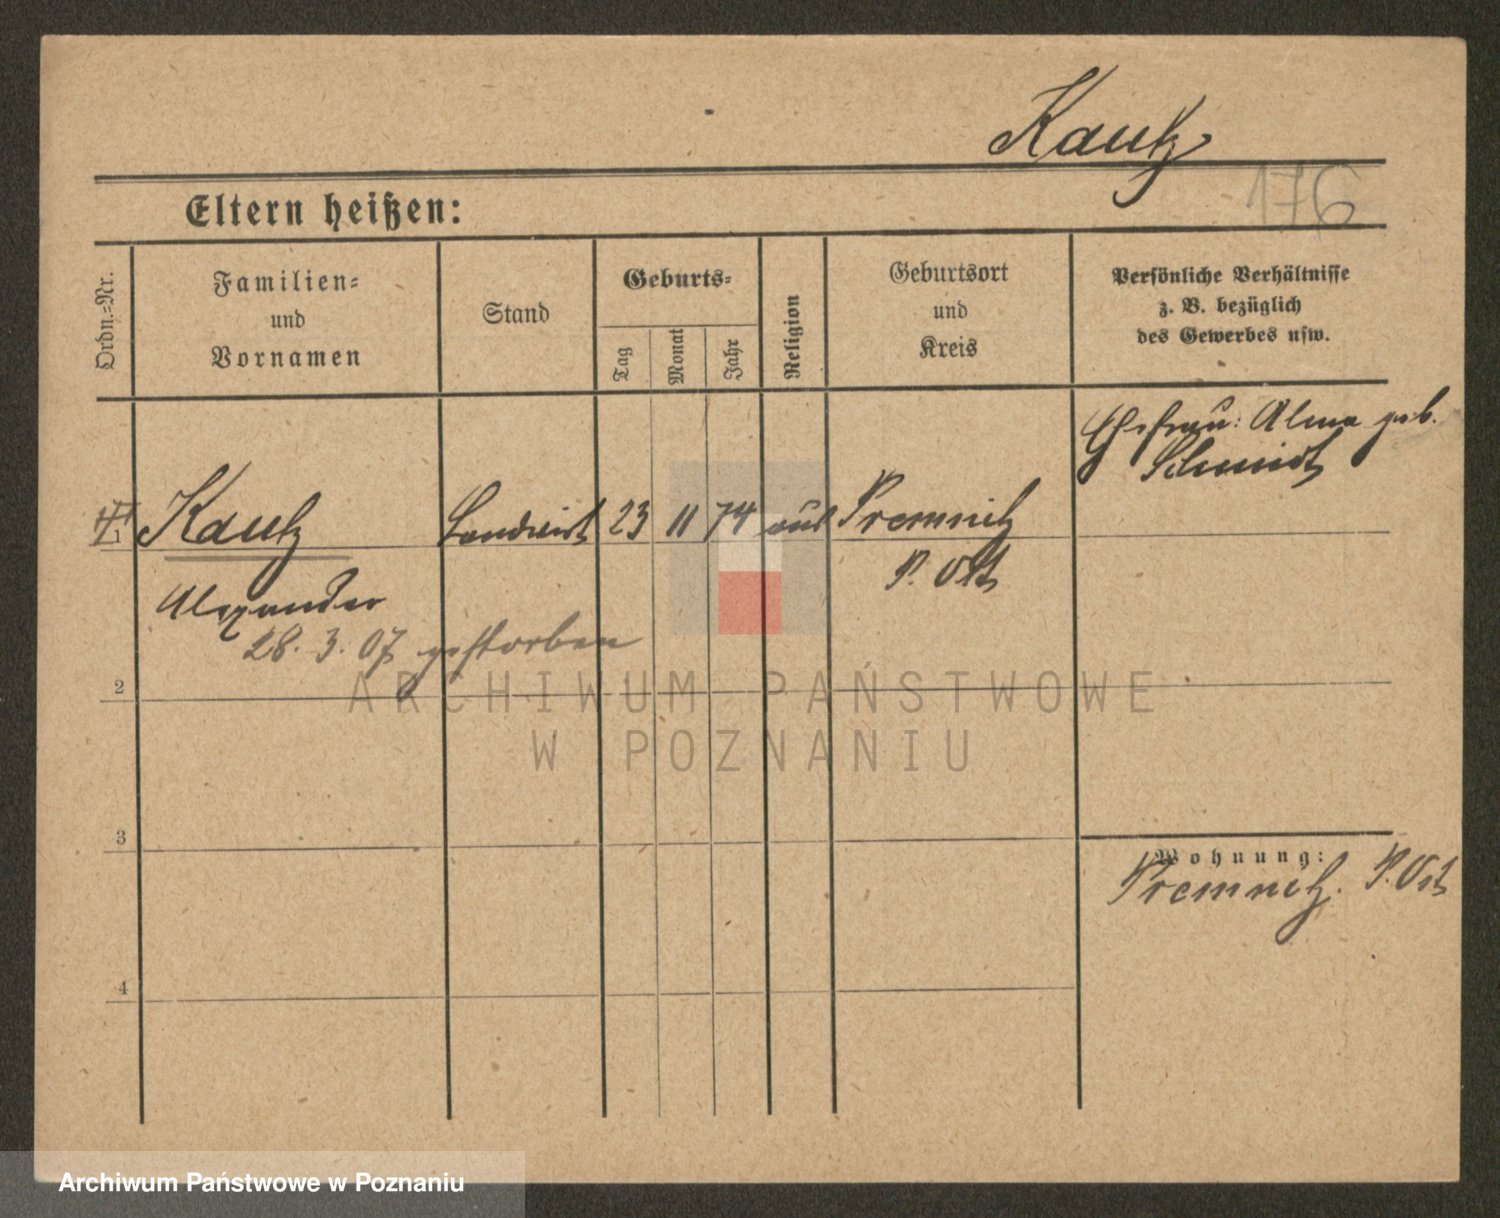 Kautz
176
Eltern heißen:
Ordn.-Nr.
Familien-
und
Vornamen
Stand
Geburts-
Tag
Monat
Jahr
Religion
Geburtsort
und
Kreis
Persönliche Verhältnisse
z. B. bezüglich
des Gewerbes usw.
Ehefrau: Alma geb.
Schmidt
1 Kautz Landwirt 23 11 74 Premnitz
P. Ost
Alexander
28. 3. 07 gestorben
2
ARCHIWUM PAŃSTWOWE
W POZNANIU
3
Wohnung:
Premnitz. P. Ost
4
Archiwum Państwowe w Poznaniu